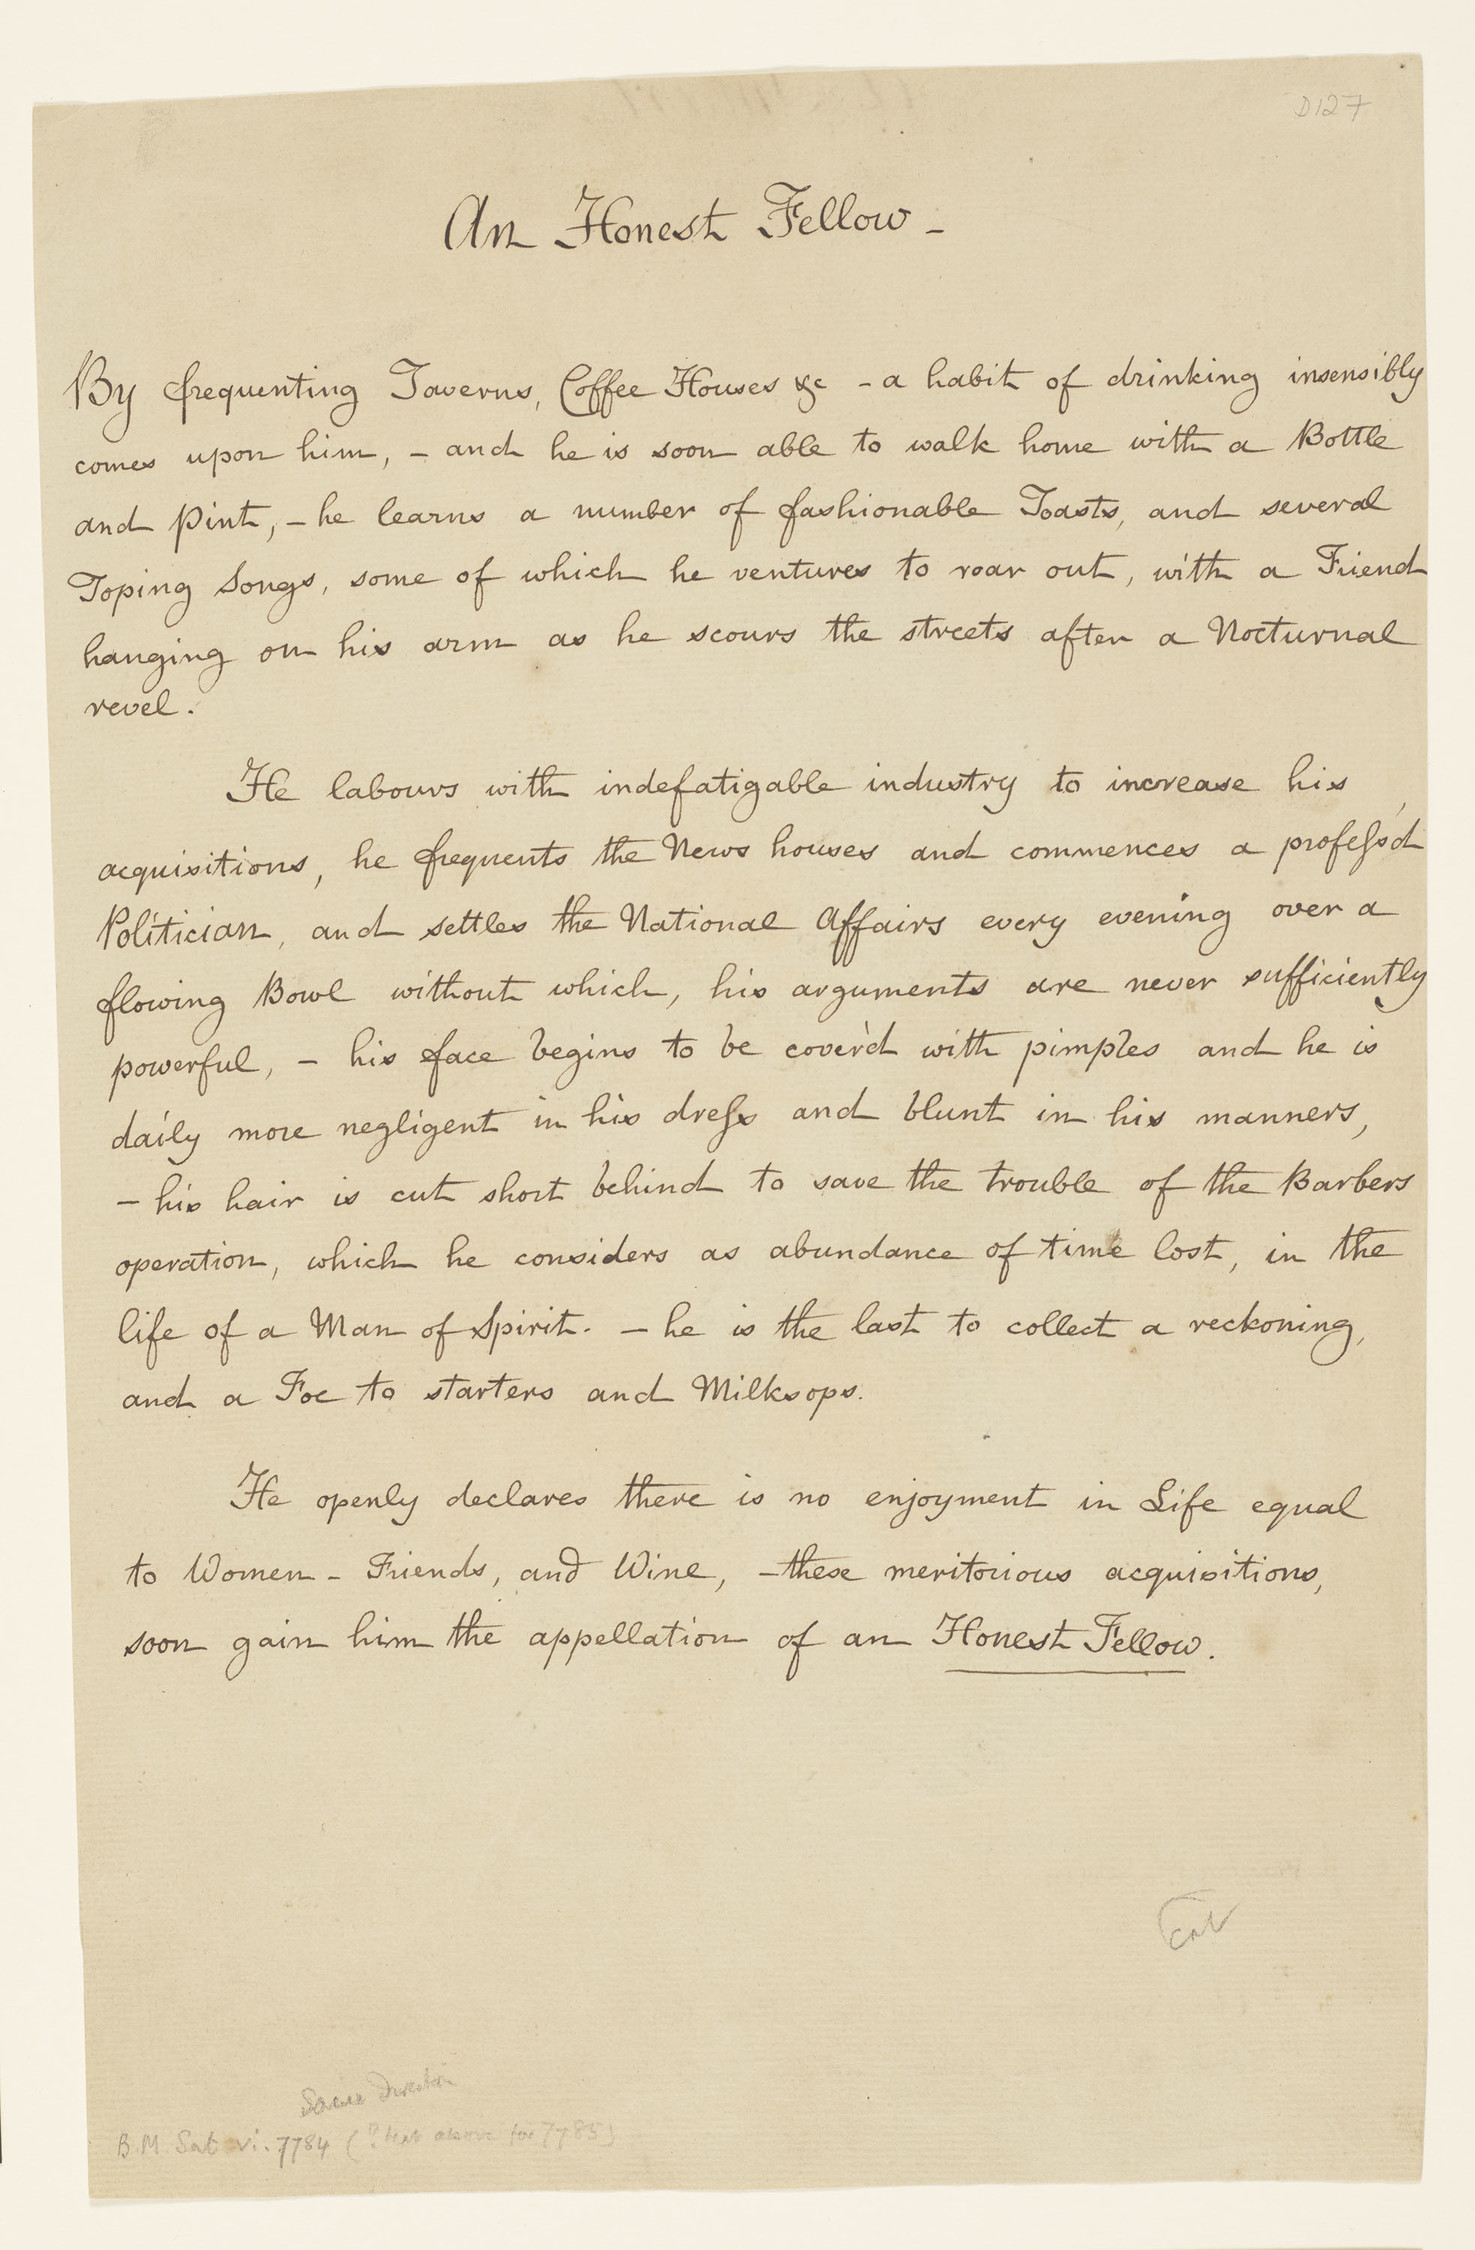 D127
An Honest Fellow –
By frequenting Taverns, Coffee Houses &c – a habit of drinking insensibly
comes upon him, – and he is soon able to walk home with a Bottle
and Pint, – he learns a number of fashionable Toasts, and several
Toping Songs, some of which he ventures to roar out, with a Friend
hanging on his arm as he scours the streets after a Nocturnal
revel.
He labours with indefatigable industry to increase his
acquisitions, he frequents the News houses and commences a profeſs'd
Politician, and settles the National Affairs every evening over a
flowing Bowl without which, his arguments are never sufficiently
powerful, – his face begins to be cover'd with pimples and he is
daily more negligent in his dreſs and blunt in his manners,
– his hair is cut short behind to save the trouble of the Barbers
operation, which he considers as abundance of time lost, in the
life of a Man of Spirit. – he is the last to collect a reckoning,
and a Foe to starters and Milksops.
He openly declares there is no enjoyment in Life equal
to Women – Friends, and Wine, – these meritorious acquisitions,
soon gain him the appellation of an Honest Fellow.
Same Direction
B.M. Sat vi. 7784 (? text above for 7785)